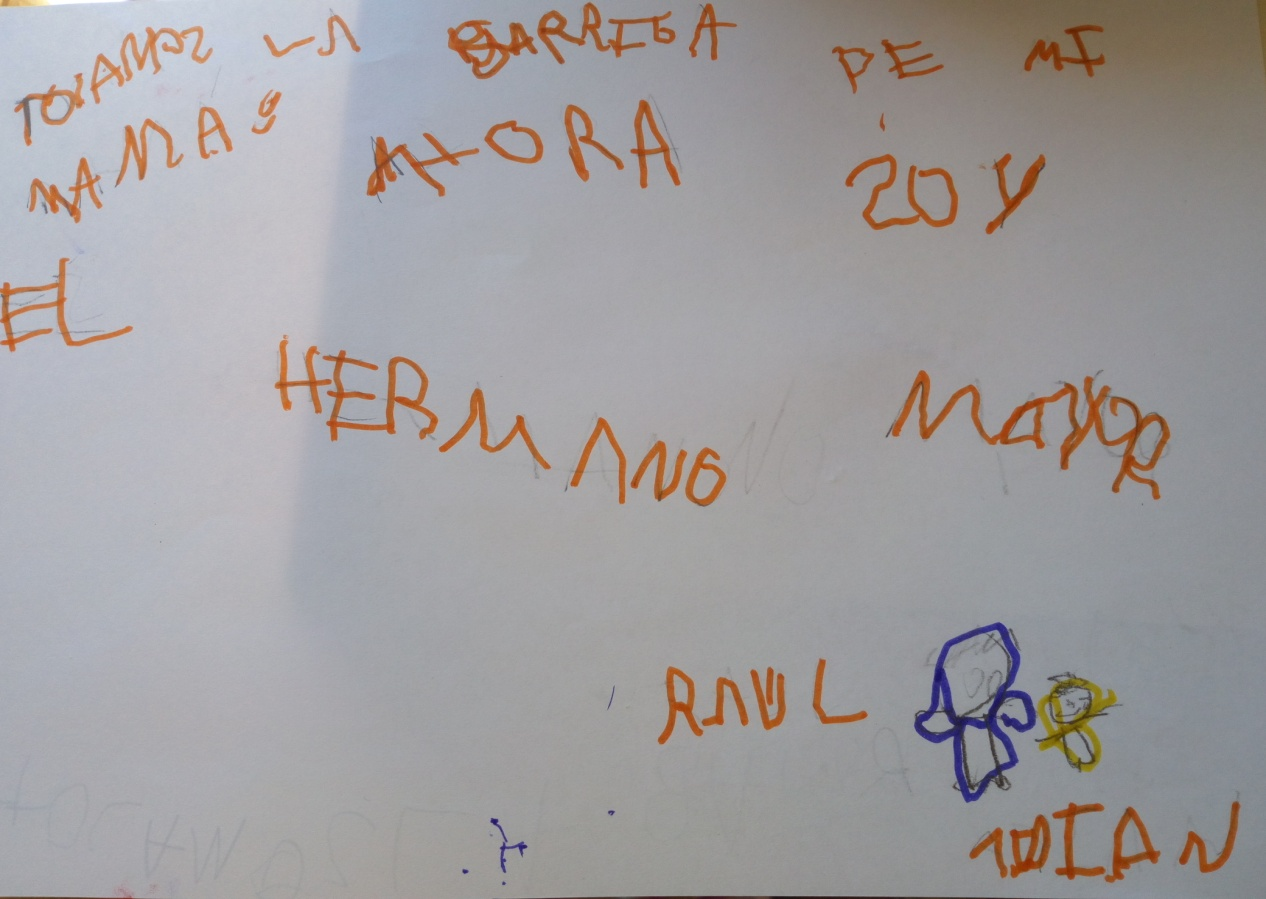 TOYAMOS LA BARRIGA DE MI
MAMA AHORA SOY
EL
HERMANO MAYOR
RAUL
IAN